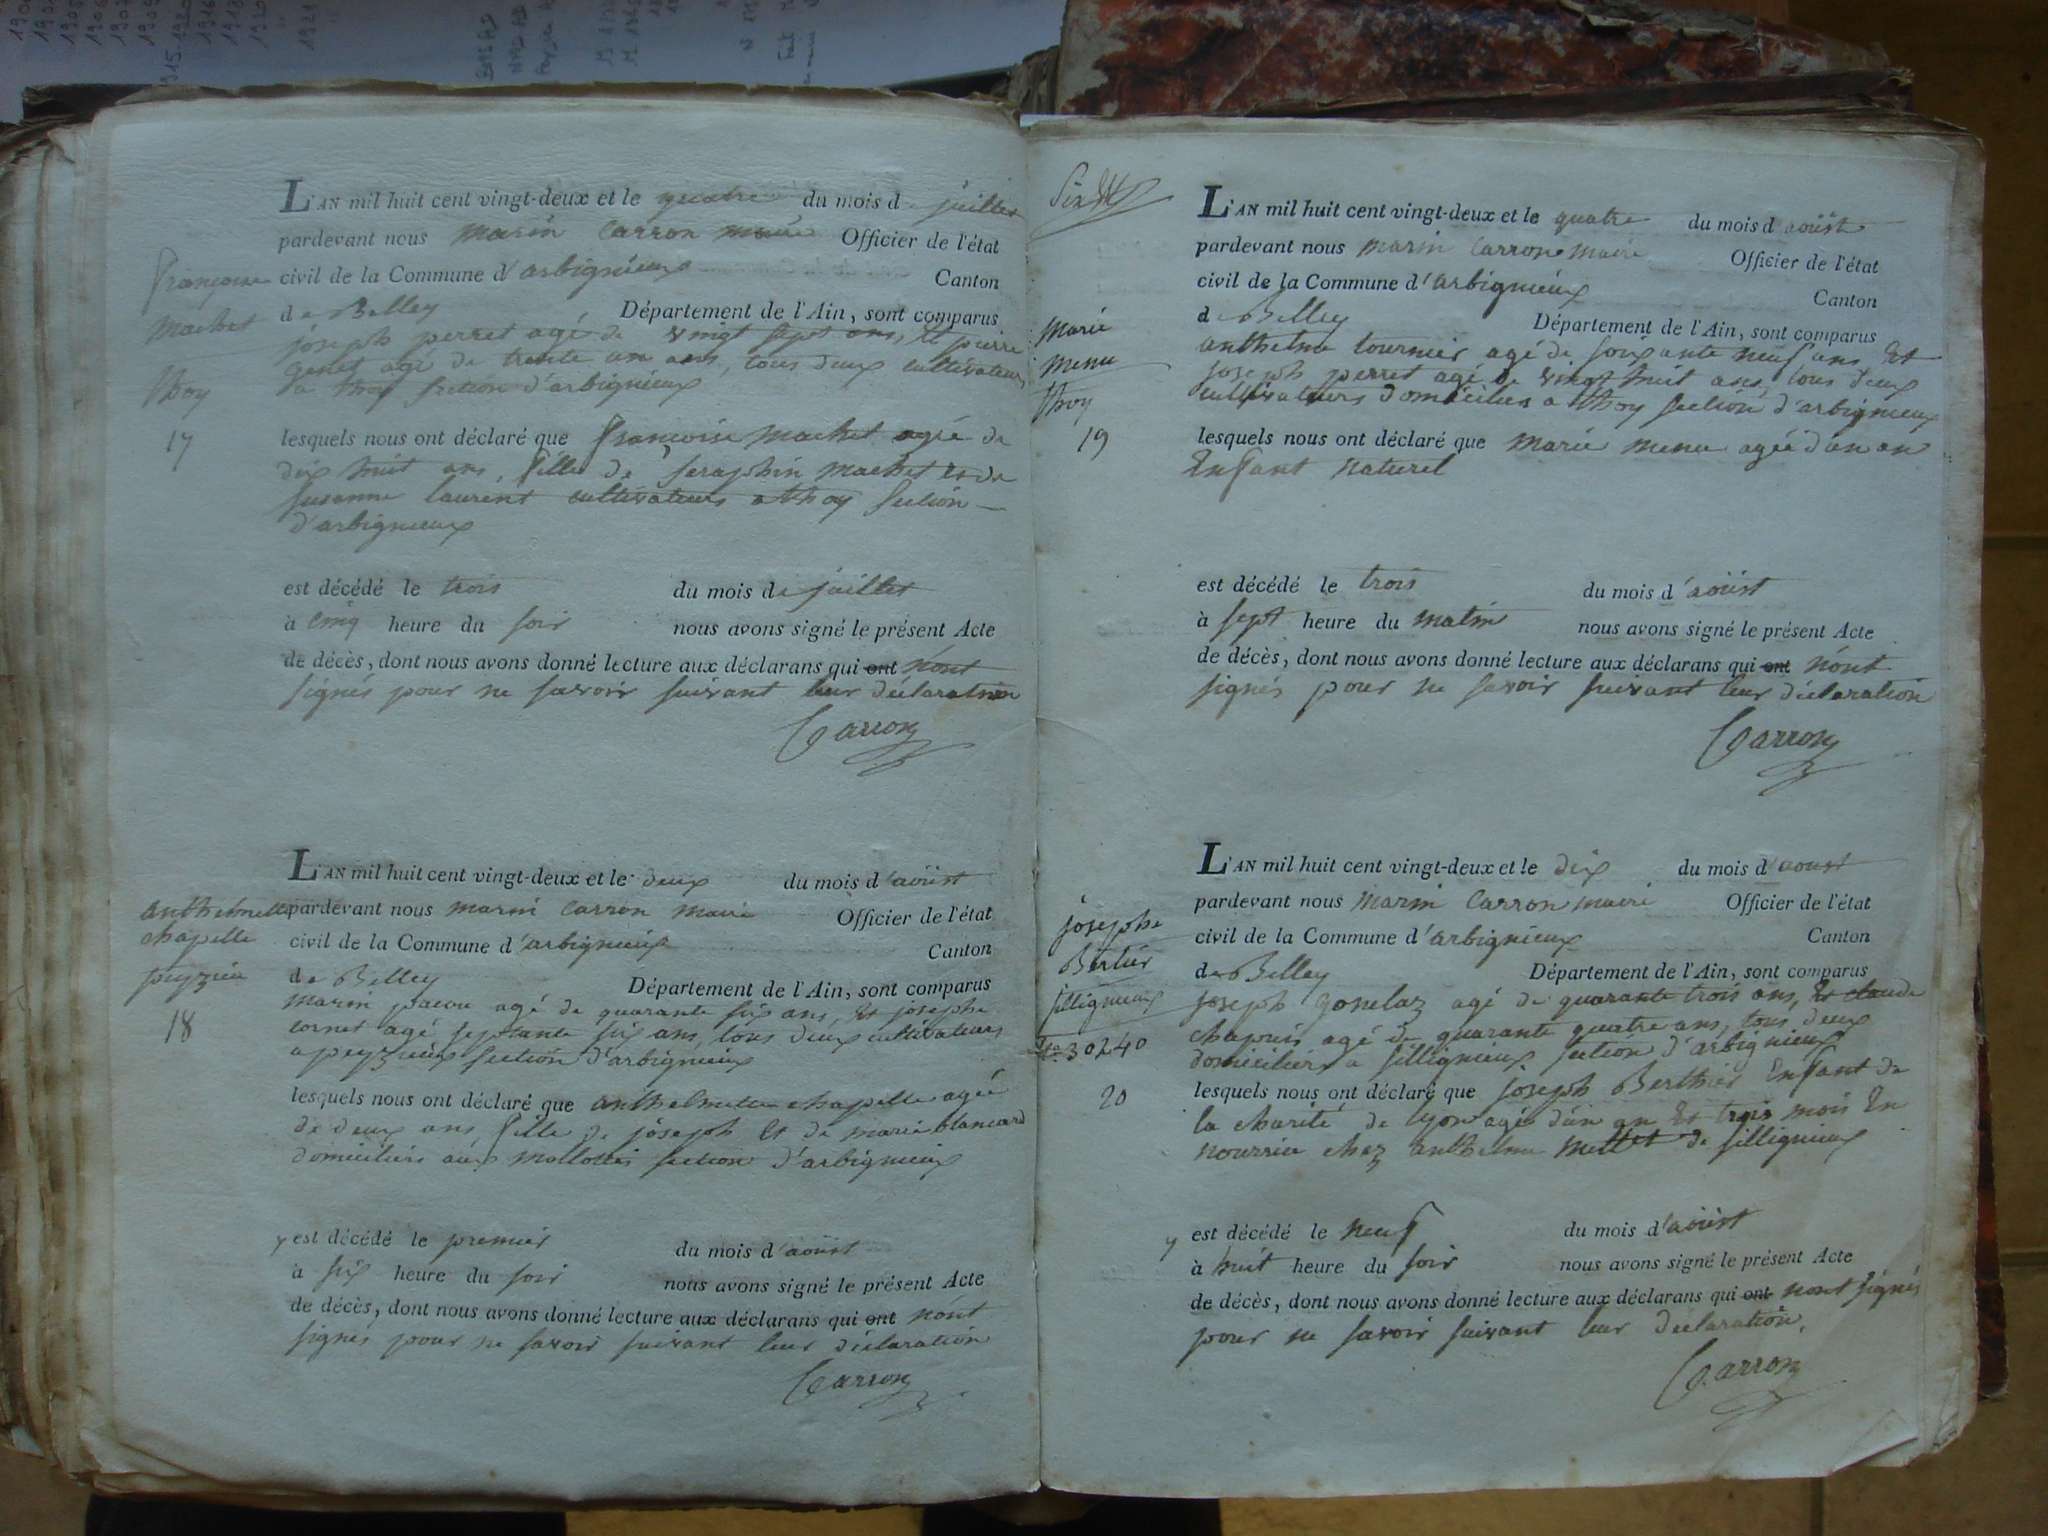 Françoise
machet
thoy
17
L'AN mil huit cent vingt-deux et le quatre du mois de juillet
pardevant nous marin Carron maire Officier de l'état
civil de la Commune d'arbignieux Canton
de Belley Département de l'Ain, sont comparus
joseph perret agé de vingt sept ans, Et pierre
genet agé de trente un ans, tous deux cultivateurs
a thoy section d'arbignieux
lesquels nous ont déclaré que françoise machet agée de
dix huit ans, fille de Seraphin machet et de
susanne laurent cultivateurs a thoy section
d'arbignieux
est décédé le trois du mois de juillet
à cinq heure du soir nous avons signé le présent Acte
de décès, dont nous avons donné lecture aux déclarans qui ont n'ont
signés pour ne savoir suivant leur déclaration
Carron
anthelmette
chapelle
peyzieu
18
L'AN mil huit cent vingt-deux et le deux du mois d'aoûst
pardevant nous marin Carron maire Officier de l'état
civil de la Commune d'arbignieux Canton
de Belley Département de l'Ain, sont comparus
marin agé de quarante six ans, Et joseph
cornet agé septante six ans, tous deux cultivateurs
a peyzieux section d'arbignieux
lesquels nous ont déclaré que anthelmette chapelle agée
de deux ans, fille de joseph Et de marie blancard
domiciliés aux mollottes section d'arbignieux
y est décédé le premier du mois d'aoûst
à six heure du soir nous avons signé le présent Acte
de décès, dont nous avons donné lecture aux déclarans qui ont n'ont
signés pour ne savoir suivant leur déclaration
Carron
Six
marie
menu
thoy
19
L'AN mil huit cent vingt-deux et le quatre du mois d'aoûst
pardevant nous marin Carron maire Officier de l'état
civil de la Commune d'arbignieux Canton
de Belley Département de l'Ain, sont comparus
anthelme tournier agé de soixante neuf ans Et
joseph perret agé de vingt huit ans, tous deux
cultivateurs domiciliés a thoy section d'arbignieux
lesquels nous ont déclaré que marie menu agée d'un an
Enfant naturel
est décédé le trois du mois d'aoûst
à sept heure du matin nous avons signé le présent Acte
de décès, dont nous avons donné lecture aux déclarans qui ont n'ont
signés pour ne savoir suivant leur déclaration
Carron
josephe
Bertier
sillignieux
no 30240
20
L'AN mil huit cent vingt-deux et le dix du mois d'aoust
pardevant nous marin Carron maire Officier de l'état
civil de la Commune d'arbignieux Canton
de Belley Département de l'Ain, sont comparus
joseph gonelaz agé de quarante trois ans, Et claude
chapuis agé de quarante quatre ans, tous deux
domiciliés a sillignieux section d'arbignieux
lesquels nous ont déclaré que joseph Berthier Enfant de
la charité de lyon agé d'un an Et trois mois En
nourrice chez anthelme mettet de sillignieux
y est décédé le neuf du mois d'aoûst
à huit heure du soir nous avons signé le présent Acte
de décès, dont nous avons donné lecture aux déclarans qui ont n'ont signés
pour ne savoir suivant leur déclaration.
Carron